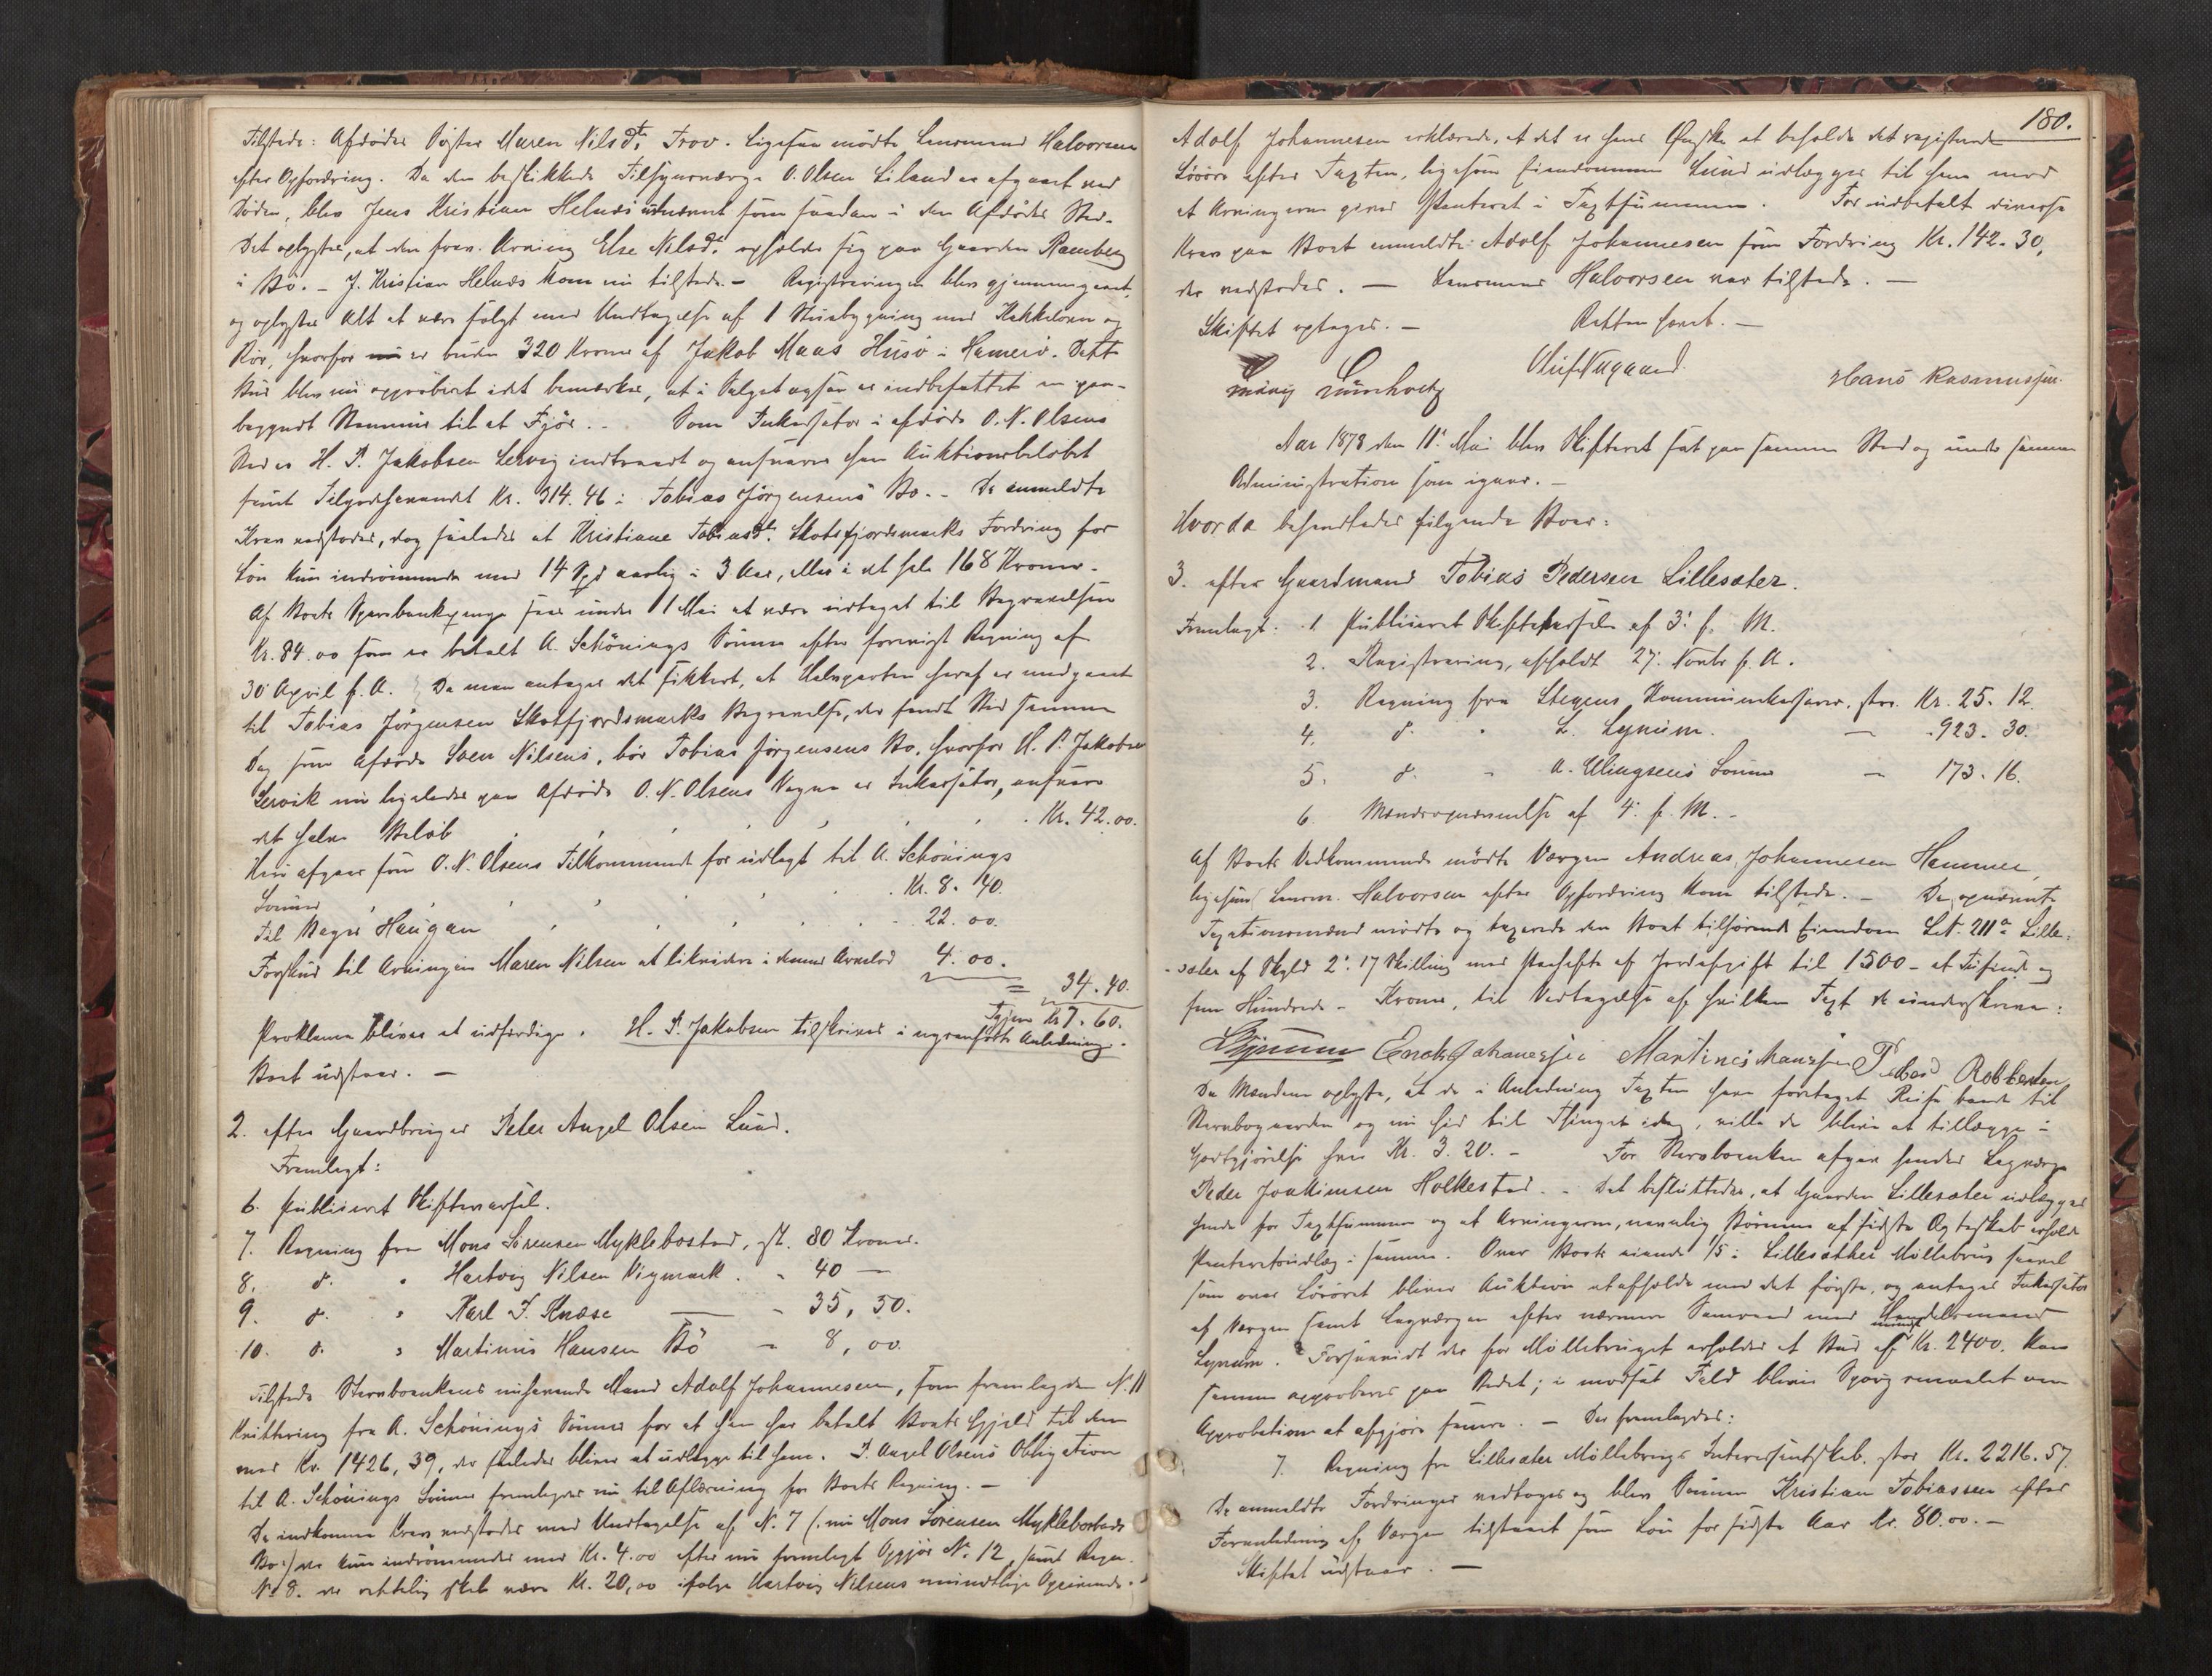 Tilstede: Afdødes Søster Maren Nilsdt. Trov. Ligesaa mødte Lensmand Halvorsen
efter Opfordring. Da den beskikkede Tilsynsværge O. Olsen Liland er afgaaet ved
Døden, blev Jens Kristian Helnæs udnævnt som saadan i den Afdødes Sted.
Det oplystes, at den frav. Arving Else Nilsdt. opholder sig paa Gaarden Ramberg
i Bø. – J. Kristian Helnæs kom nu tilstede. – Registreringen blev gjennemgaaet,
og oplystes Alt at være solgt med Undtagelse af 1 Stuebygning med Kakkelovn og
Rør, hvorfor er buden 320 Kroner af Jakob Maas Husø i Hamerø. Dette
Bud blev nu approberet idet bemærkes, at i Salget ogsaa er indbefattet en paa-
begyndt Nommur til et Fjøs. – Som Inkassator i afdøde O. N. Olsens
Sted er H. P. Jakobsen Lervig indtraadt og ansvarer han Auktionsbeløbet
samt Tilgodehavendet Kr. 314. 46 i Tobias Jørgensens Bo. – De anmeldte
Krav vedtoges, dog saaledes at Kristiane Tobiasdt. Skotsfjordsmarks Fordring for
Løn kun indrømmedes med 14 Spd aarlig i 3 Aar, eller i det hele 168 Kroner.
Af Boets Sparebankpenge sees under 1 Mai at være udtaget til Begravelsen
Kr. 84.00 som er betalt A. Schönings Sønner efter forevist Regning af
30 April f. A. Da man antager det sikkert, at Halvparten heraf er medgaaet
til Tobias Jørgensen Skotfjordsmarks Begravelse, der fandt Sted samme
Dag som Afdøde Sven Nilsens, bør Tobias Jørgensens Bo, hvorfor H. P. Jakobsen
Lervik nu ligeledes paa Afdøde O. N. Olsens Vegne er Inkassator, ansvare
det halve Beløb . . . . . Kr. 42.00.
Heri afgaar som O. N. Olsens Tilkommende for udlagt til A. Schönings
Sønner . . . . Kr. 8. 40.
Til Haugan . . . . 22. 00.
Forskud til Arvingen Maren Nilsen at likvidere i dennes Arvelod 4. 00.
= 34. 40.
Igjen Kr. 7. 60.
Proklama bliver at udfærdige. H. P. Jakobsen tilskrives i ovenanførte Anledning.
Boet udstaar. –
2. efter Gaardbruger Peter Angel Olsen Lund.
Fremlagt:
6. Publiceret Skiftevarsel.
7. Regning fra Mons Sørensen Myklebostad, st. 80 Kroner.
8. d. " Hartvig Nilsen Vigmark. - 40 —
9. d. " Karl J. Knæse — - 35, 50.
10. d. " Martinus Hansen Bø - 8, 00
Tilstede Stervboenkens nuhavende Mand Adolf Johannesen, som fremlagde N. 11
Kvittering fra A. Schönings Sønner for at han har betalt Boets Gjæld til dem
med Kr. 1426, 39, der saaledes bliver at udlægge til ham. P. Angel Olsens Obligation
til A. Schönings Sønner fremlagdes nu til Aflæsning fra Boets Regning. –
De indkomne Krav vedtoges med Undtagelse af N. 7 (: nu Mons Sørensen Myklebostads
Bo:) der kun indrømmedes med Kr. 4.00 efter nu fremlagt Opgjør N. 12, samt Regn.
N. 8. der rettelig skal være Kr. 20,00 ifølge Hartvig Nilsens mundtlige Opgivende. –
180.
Adolf Johannesen erklærede, at det er hans Ønske at beholde det registrerede
Løsøre efter Taxten, ligesom Eiendommen Lund udlægges til ham mod
at Arvingerne gives Panteret i Taxtsummen. For udbetalt diverse
Krav paa Boet anmeldte Adolf Johannesen som Fordring Kr. 142. 30,
der vedtoges. — Lensmand Halvorsen var tilstede. —
Skiftet optages. – Retten hævet. –
Hans Rasmussen
Aar 1878 den 11te Mai blev Skifteret sat paa samme Sted og under samme
Administration som igaar. –
Hvorda behandledes følgende Boer:
3. efter Gaardmand Tobias Pedersen Lillesæter.
Fremlagt: 1 Publiceret Skiftevarsel af 3. f. M.
2. Registrering, afholdt 27. Novbr f. A.
3. Regning fra Stegens Kommunekasserer, stor Kr. 25. 12.
4. d. " L. Lynum. — - 923. 30.
5. d. " A. Ellingsens Sønner — 173. 16.
6. Mændsopnævnelse af 4. f. M. –
Af Boets Vedkommende mødte Værgen Andreas Johannesen Hammer,
ligesom Lensm. Halvorsen efter Opfordring kom tilstede. – De opnævnte
Taxationsmænd mødte og taxerede den Boet tilhørende Eiendom Lit. 211a Lille-
sæter af Skyld 2. 17 Skilling med Paahefte af Jordafgift til 1500 – et Tusinde og
fem Hundrede – Kroner, til Vedtagelse af hvilken Taxt de underskrive:
Lynum Enok Johanessen Martines Peder Robbertsen
Da Mændene oplyste, at de i Anledning Taxten have foretaget Reise baade til
Stervbogaarden og nu hid til Thinget idag, ville de blive at tillægge i
Godtgjørelse hver Kr. 3. 20. – For Stervboenken afgav hendes Lagværge
Peder Joakimsen Holkestad. – Det besluttedes, at Gaarden Lillesæter udlægges
hende for Taxtsummen og at Arvingerne, nemlig Børnene af sidste Ægteskab erholde
Panteretsudlæg i samme. Over Boets eiende 1/5 i Lillesæther Møllebrug saavel
som over Løsøret bliver Auktion at afholde med det første, og antages Inkassator
af Værgen samt Lagværgen efter nærmere Samraad med Handelsmand
Lynum. Forsaavidt der for Møllebruget erholdes et Bud af mindst Kr. 2400. kan
samme approberes paa Stedet; i modsat Fald bliver Spørgsmaalet om
Approbation at afgjøre senere. – Der fremlagdes:
7. Regning fra Lillesæter Møllebrugs Interessentskab, stor Kr. 2216. 57.
De anmeldte Fordringer vedtoges og blev Sønnen Kristian Tobiassen efter
Foranledning af Værgen tilstaaet som Løn for sidste Aar Kr. 80.00. –
Skiftet udstaar. —